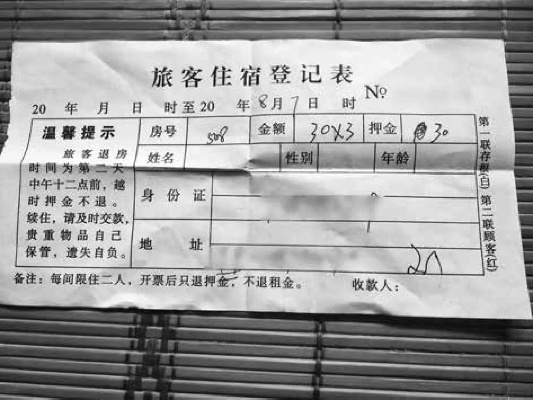 旅客住宿登记表
20 年 月 日 时至20 年8月7日 时 №
温馨提示
旅客退房时间为第二天
中午十二点前，越
时押金不退。
续住，请及时交款，
贵重物品自己
保管，遗失自负。
房号 508 金额 30X3 押金 30
姓名 性别 年龄
身份证
地址
备注：每间限住二人，开票后只退押金，不退租金。 收款人：
第一联存根(白) 第二联顾客(红)